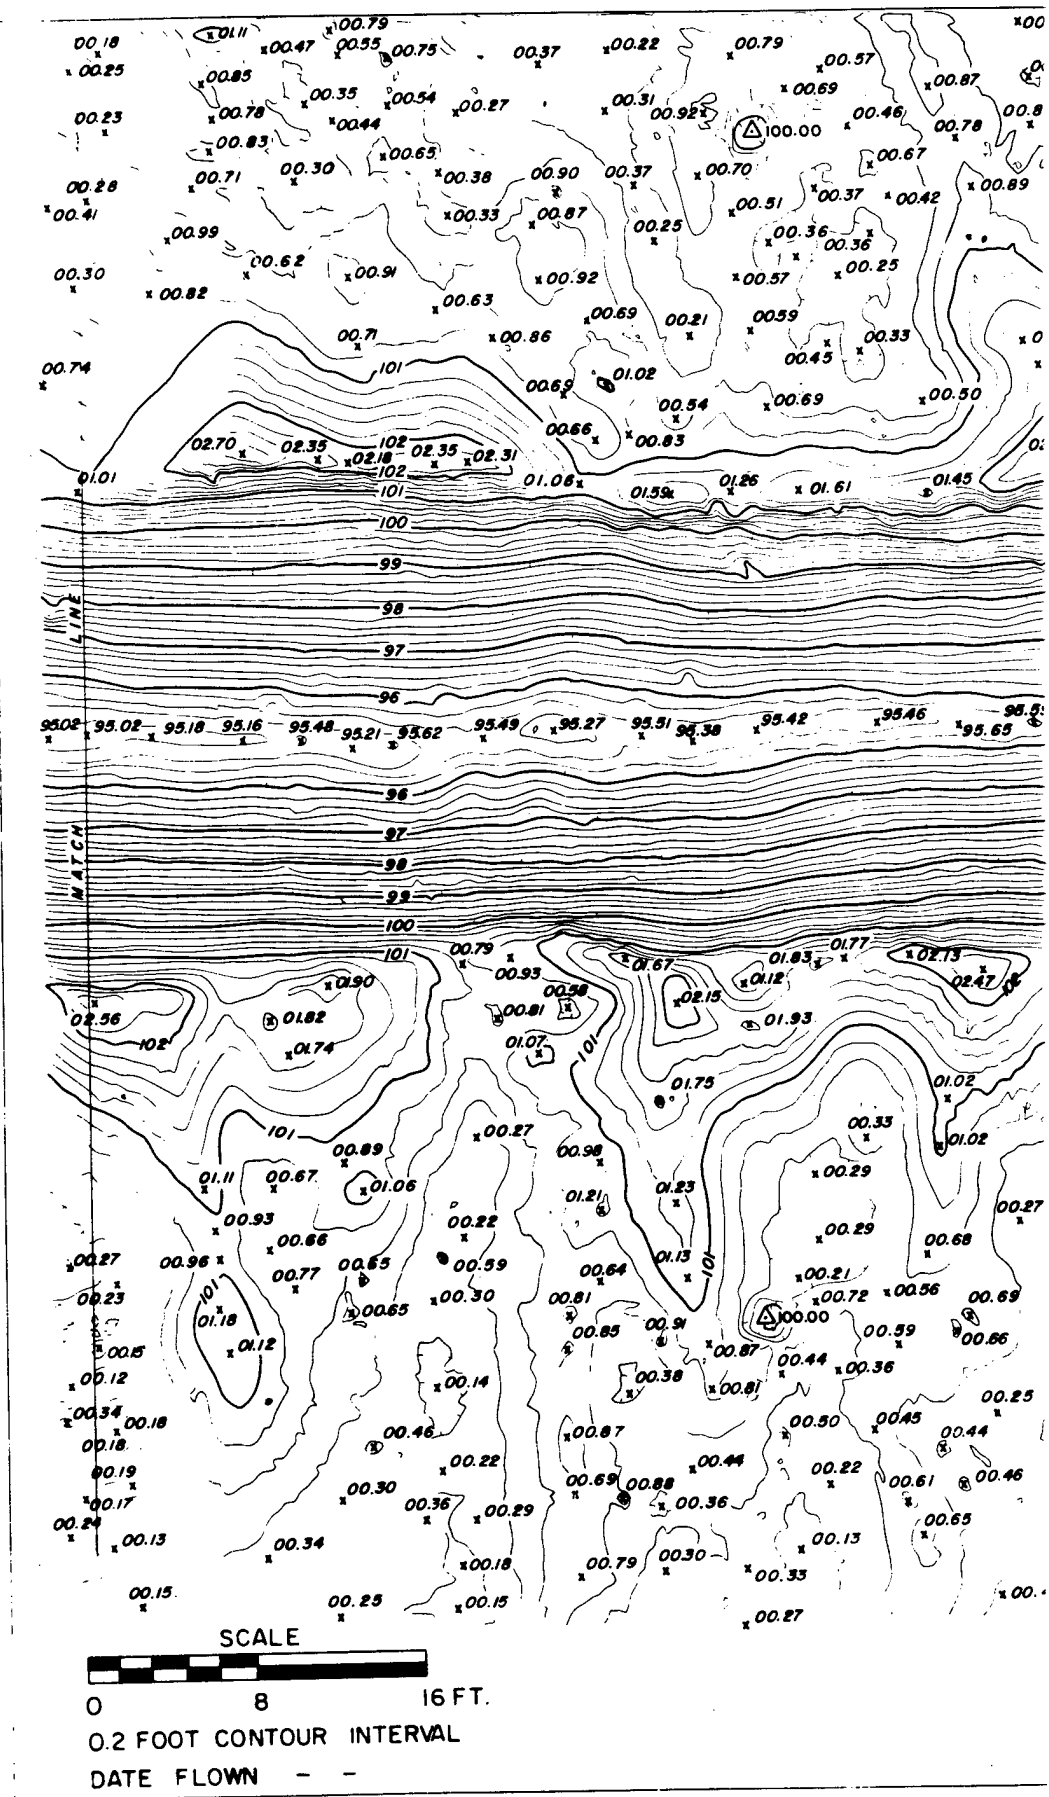 00.79
00.18 01.11 00.47 00.55 00.75 00.37 00.22 00.79 00.57
00.25 00.85 00.35 00.54 00.27 00.31 00.92 00.69 00.87
00.23 00.78 00.44 100.00 00.46 00.78
00.83 00.65 00.67
00.28 00.71 00.30 00.38 00.90 00.37 00.70 00.37 00.42 00.89
00.41 00.99 00.33 00.87 00.25 00.51 00.36 00.36
00.30 00.62 00.91 00.92 00.57 00.25
00.82 00.63 00.69 00.21 00.59
00.71 00.86 00.45 00.33
00.74 101 00.69 01.02 00.69 00.50
00.54
02.70 02.35 102 02.35 00.66 00.83
02.18 02.31
01.01 102 01.06 01.59 01.26 01.61 01.45
101
100
99
98
LINE
97
96
95.02 95.02 95.18 95.16 95.48 95.21 95.62 95.49 95.27 95.51 95.38 95.42 95.46 95.65
96
97
MATCH
98
99
100
101 00.79 00.93 01.67 01.83 01.77 02.13
01.90 00.58 02.15 01.12 02.47 102
02.56 01.82 00.81 01.93
102 01.74 01.07 101
01.75 01.02
101 00.27 00.33 01.02
00.89 00.98
01.11 00.67 01.06 01.21 01.23 00.29
00.93 00.22 00.29 00.27
00.27 00.96 00.66 00.65 00.59 00.64 01.13 101 00.21 00.68
00.23 101 00.77 00.65 00.30 00.81 00.72 00.56 00.69
01.18 00.85 00.91 100.00 00.59 00.66
00.15 01.12 00.87 00.44 00.36
00.12 00.14 00.38 00.81
00.34 00.18 00.46 00.87 00.50 00.45 00.25
00.18 00.44
00.19 00.22 00.44 00.22 00.61 00.46
00.17 00.30 00.36 00.29 00.69 00.88 00.36
00.24 00.13 00.34 00.13 00.65
00.18 00.79 00.30 00.33
00.15 00.25 00.15 00.27
SCALE
0 8 16 FT.
0.2 FOOT CONTOUR INTERVAL
DATE FLOWN - -